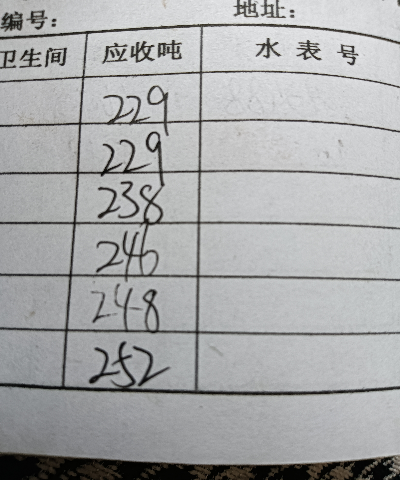 编号： 地址：
卫生间 应收吨 水表号
229
229
238
246
248
252